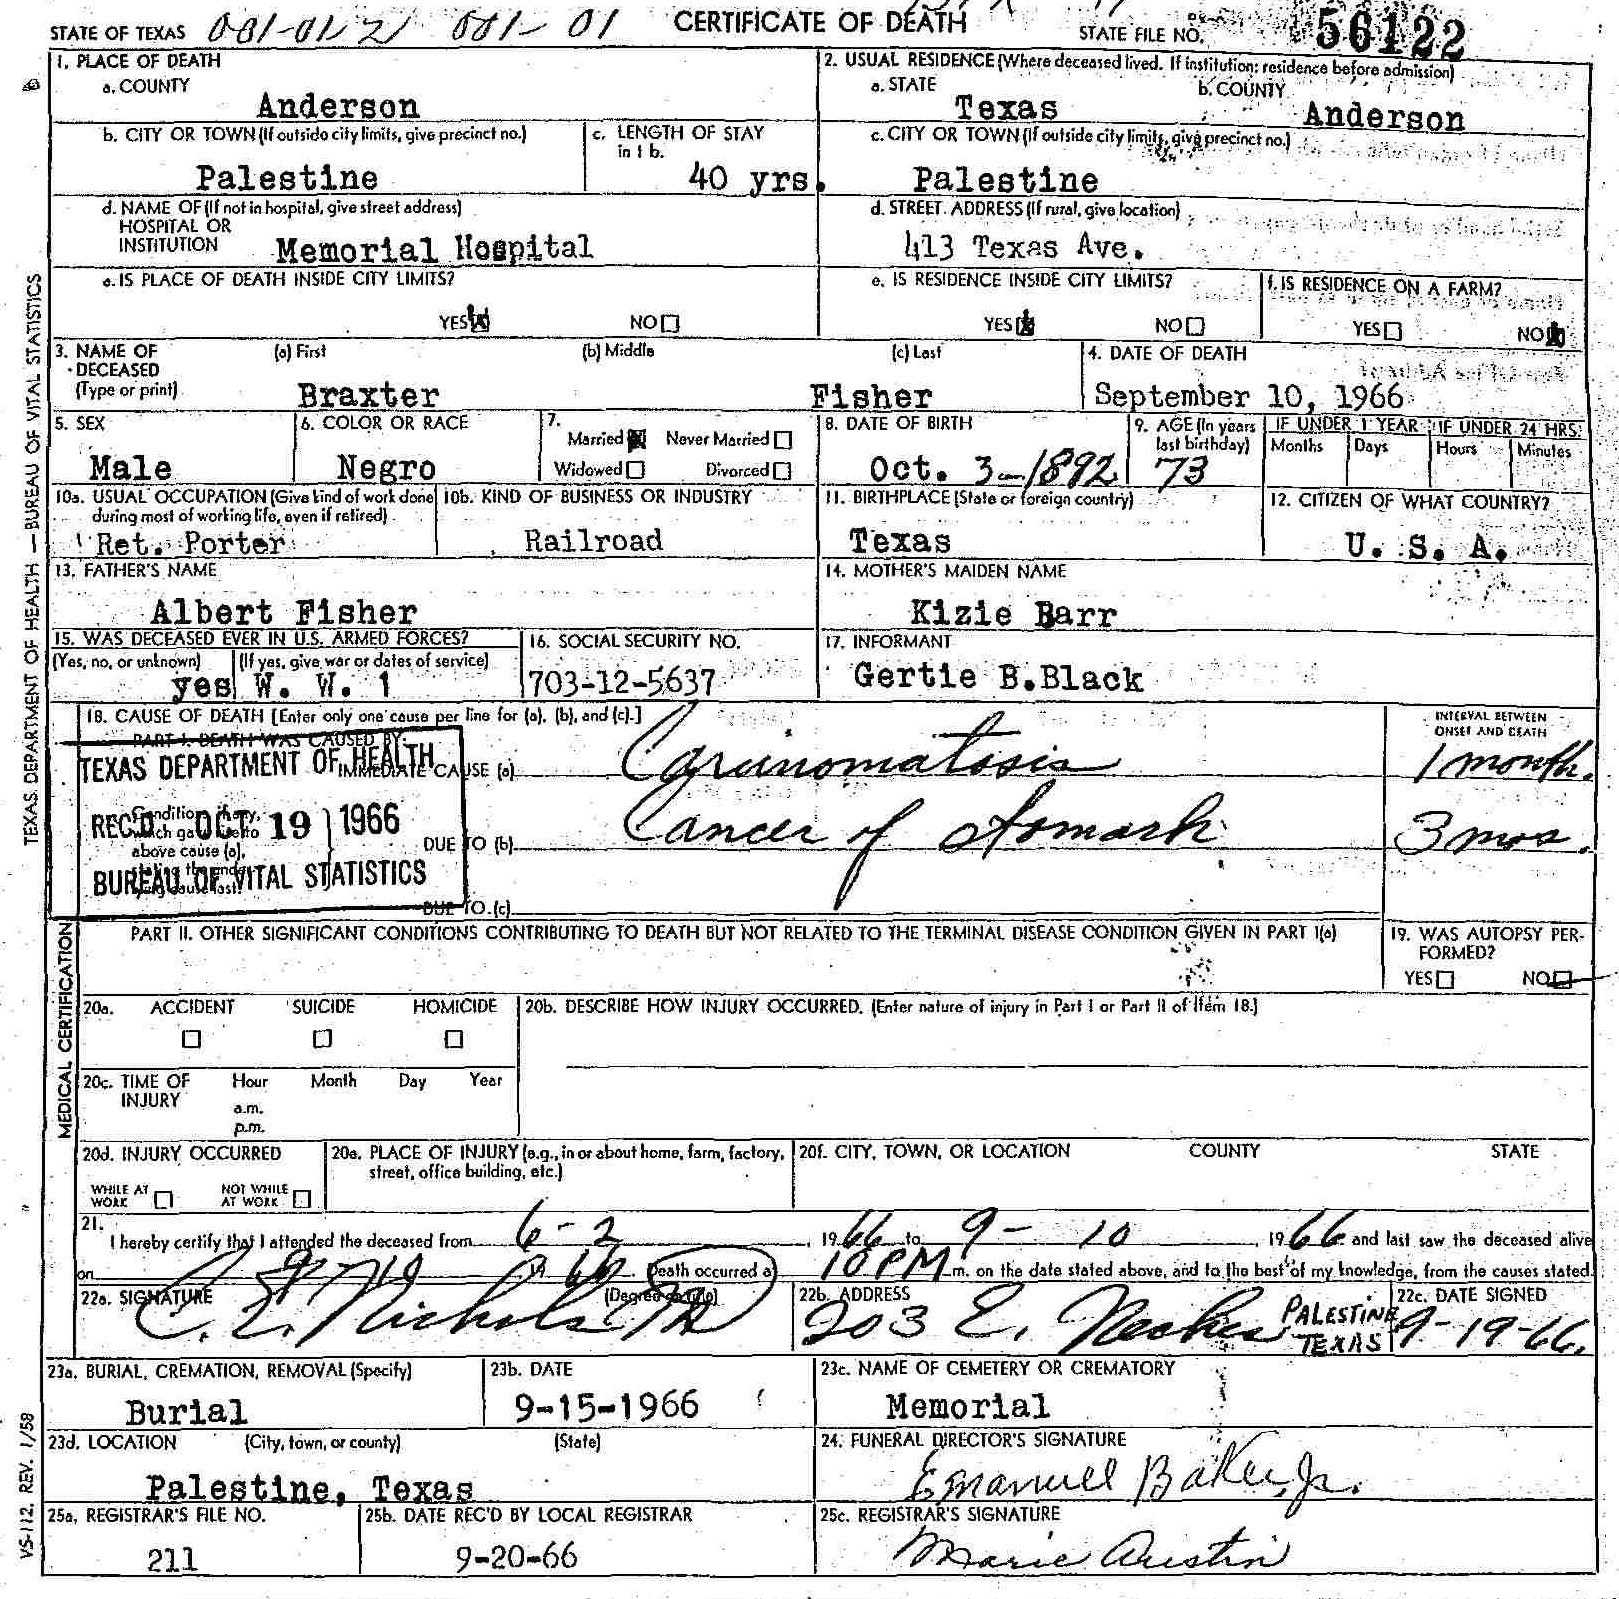 STATE OF TEXAS 001-01-21 001-01 CERTIFICATE OF DEATH STATE FILE NO. 56122
1. PLACE OF DEATH
a. COUNTY
Anderson
2. USUAL RESIDENCE (Where deceased lived. If institution: residence before admission)
a. STATE
Texas
b. COUNTY
Anderson
b. CITY OR TOWN (If outside city limits, give precinct no.)
Palestine
c. LENGTH OF STAY
in 1 b.
40 yrs.
c. CITY OR TOWN (If outside city limits, give precinct no.)
Palestine
d. NAME OF (If not in hospital, give street address)
HOSPITAL OR
INSTITUTION Memorial Hospital
d. STREET ADDRESS (If rural, give location)
413 Texas Ave.
e. IS PLACE OF DEATH INSIDE CITY LIMITS?
YES NO
e. IS RESIDENCE INSIDE CITY LIMITS?
YES NO
f. IS RESIDENCE ON A FARM?
YES NO
3. NAME OF
DECEASED
(Type or print)
(a) First (b) Middle (c) Last
Braxter Fisher
4. DATE OF DEATH
September 10, 1966
5. SEX
Male
6. COLOR OR RACE
Negro
7.
Married Never Married
Widowed Divorced
8. DATE OF BIRTH
Oct. 3-1892
9. AGE (In years
last birthday)
73
IF UNDER 1 YEAR
Months Days
IF UNDER 24 HRS.
Hours Minutes
10a. USUAL OCCUPATION (Give kind of work done
during most of working life, even if retired)
Ret. Porter
10b. KIND OF BUSINESS OR INDUSTRY
Railroad
11. BIRTHPLACE (State or foreign country)
Texas
12. CITIZEN OF WHAT COUNTRY?
U. S. A.
13. FATHER'S NAME
Albert Fisher
14. MOTHER'S MAIDEN NAME
Kizie Barr
15. WAS DECEASED EVER IN U.S. ARMED FORCES?
(Yes, no, or unknown) (If yes, give war or dates of service)
yes W. W. 1
16. SOCIAL SECURITY NO.
703-12-5637
17. INFORMANT
Gertie B.Black
18. CAUSE OF DEATH [Enter only one cause per line for (a), (b), and (c).]
INTERVAL BETWEEN
ONSET AND DEATH
PART I. DEATH WAS CAUSED BY:
IMMEDIATE CAUSE (a) Carcinomatosis 1 month.
DUE TO (b) Cancer of Stomach 3 mos.
DUE TO (c)
TEXAS DEPARTMENT OF HEALTH
REC'D OCT 19 1966
BUREAU OF VITAL STATISTICS
above cause (a),
PART II. OTHER SIGNIFICANT CONDITIONS CONTRIBUTING TO DEATH BUT NOT RELATED TO THE TERMINAL DISEASE CONDITION GIVEN IN PART I(a)
19. WAS AUTOPSY PER-
FORMED?
YES NO
20a. ACCIDENT SUICIDE HOMICIDE
20b. DESCRIBE HOW INJURY OCCURRED. (Enter nature of injury in Part I or Part II of Item 18.)
20c. TIME OF
INJURY
Hour Month Day Year
a.m.
p.m.
20d. INJURY OCCURRED
WHILE AT
WORK
NOT WHILE
AT WORK
20e. PLACE OF INJURY (e.g., in or about home, farm, factory,
street, office building, etc.)
20f. CITY, TOWN, OR LOCATION COUNTY STATE
21.
I hereby certify that I attended the deceased from 6-2, 1966 to 9-10, 1966 and last saw the deceased alive
on 9-10 66 Death occurred at 10 PM m. on the date stated above, and to the best of my knowledge, from the causes stated.
22a. SIGNATURE (Degree or title)
C. E. Nichols MD
22b. ADDRESS
203 E. Neches PALESTINE
TEXAS
22c. DATE SIGNED
9-19-66.
23a. BURIAL, CREMATION, REMOVAL (Specify)
Burial
23b. DATE
9-15-1966
23c. NAME OF CEMETERY OR CREMATORY
Memorial
23d. LOCATION (City, town, or county) (State)
Palestine, Texas
24. FUNERAL DIRECTOR'S SIGNATURE
Emanuell Baker, Jr.
25a. REGISTRAR'S FILE NO.
211
25b. DATE REC'D BY LOCAL REGISTRAR
9-20-66
25c. REGISTRAR'S SIGNATURE
Marie Austin
TEXAS DEPARTMENT OF HEALTH — BUREAU OF VITAL STATISTICS
MEDICAL CERTIFICATION
VS-112. REV. 1/58